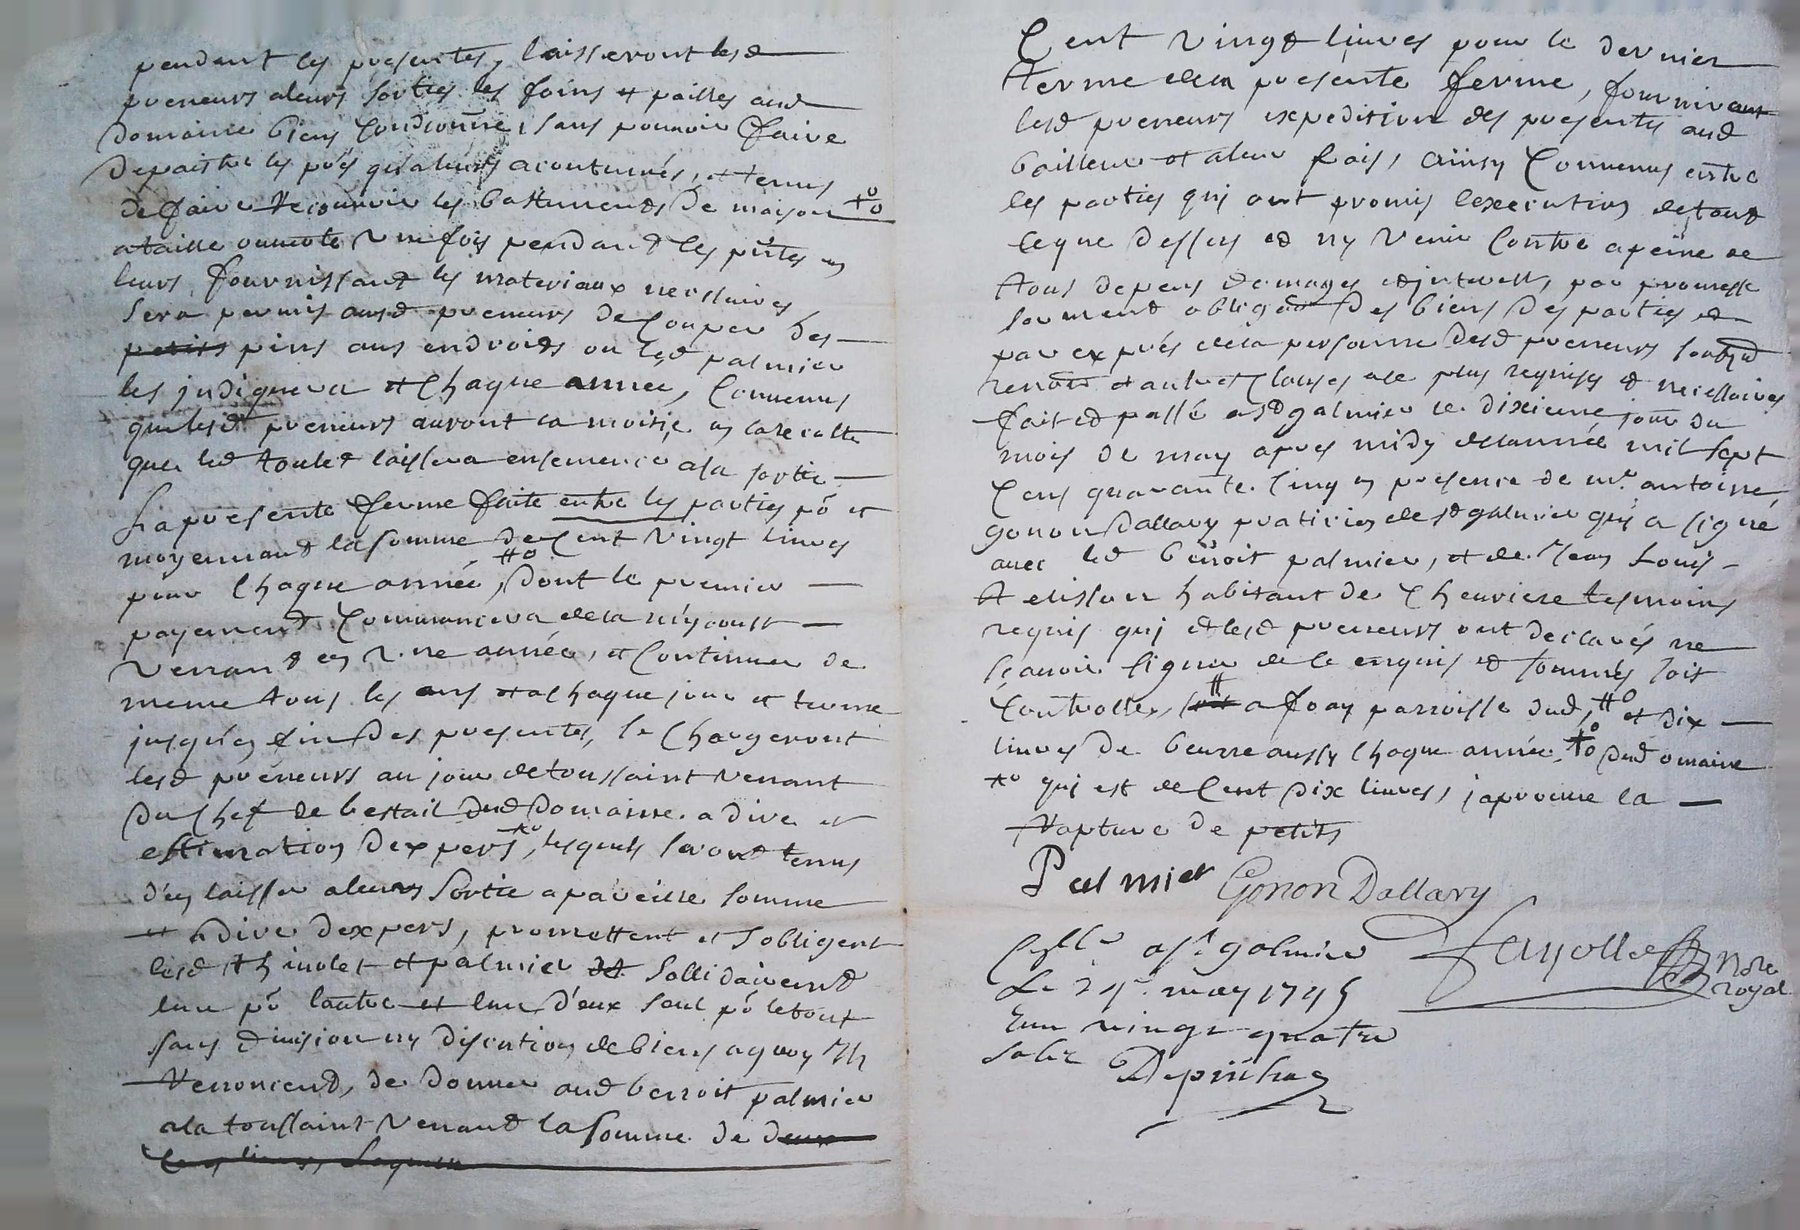 pendant les presentes, laisseront lesd
preneurs aleurs sorties les foins et pailles aud
domaine biens conditionné, sans pouvoir faire
depaistre les prés qu'aleurs acoutumés, et tenus
de faire recouvrir les bastiments de maison
ataille ouverte une fois pendant les pntes en
leurs fournissant les materiaux necessaires
sera permis ausd preneurs de couper des
petits pins aus endroits ou led palmier
les indiquera et chaque année, convenus
que lesd preneurs auront la moitié en la recolte
que led toulet laissera ensemencé a sa sortie
La presente ferme faite entre les parties po et
moyennant la somme de cent vingt livres
pour chaque année, dont le premier
payement commancera de la my aoust
venant en une année, et continuer de
meme tous les ans et a chaque jour et terme
jusqu'en fin des presentes, se chargeront
lesd preneurs au jour de toussaint venant
du chef de bestail dud domaine a dire et
estimation dexpers, lesquels seront tenus
d'en laisser aleurs sortie a pareille somme
et adire dexpers, promettent et sobligent
lesd thiuolet et palmier sollidairement
lun po lautre et lun d'eux seul po letout
sans division ny discution de biens aquoy ils
renoncent, de donner aud benoit palmier
ala toussaint venant la somme de deux
cens livres
Cent vingt livres pour le dernier
terme dela presente ferme, fourniront
lesd preneurs expedition des presentes aud
bailleur et aleur frais, ainsy convenus entre
les parties qui ont promis lexecution de tout
leque dessus et ny venir contre apeine de
tous depens domages et interests, par promesse
serment obligaon des biens des parties et
par exprés de la personne desd preneurs soubzon
renaon et autres clauses ale plus requises et necessaires
fait et passé a St galmier le dixieme jour du
mois de may apres midy de lannée mil sept
cens quarante cinq en presence de mr. antoine
gonon Dallary praticien de St galmier qui a signé
avec led benoit palmier, et de Jean Louis
telisson habitant de Cheuriere tesmoins
requis qui et lesd preneurs ont declarés ne
sçavoir signer de ce enquis et sommés soit
controllé, a foay parroisse dud, et dix
livres de beurre aussy chaque année, dud omaine
qui est de cent dix livres, japrouve la
rapture de petits
Palmier Gonon Dallary
Coллé a St galmier
Fayolle Nore royal
Le 24e may 1745
Reçu vingt quatre
sols